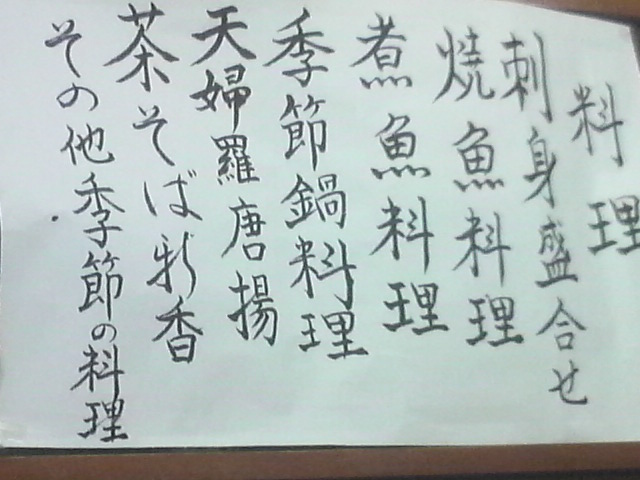 料理
刺身盛合せ
焼魚料理
煮魚料理
季節鍋料理
天婦羅唐揚
茶そば新香
その他季節の料理